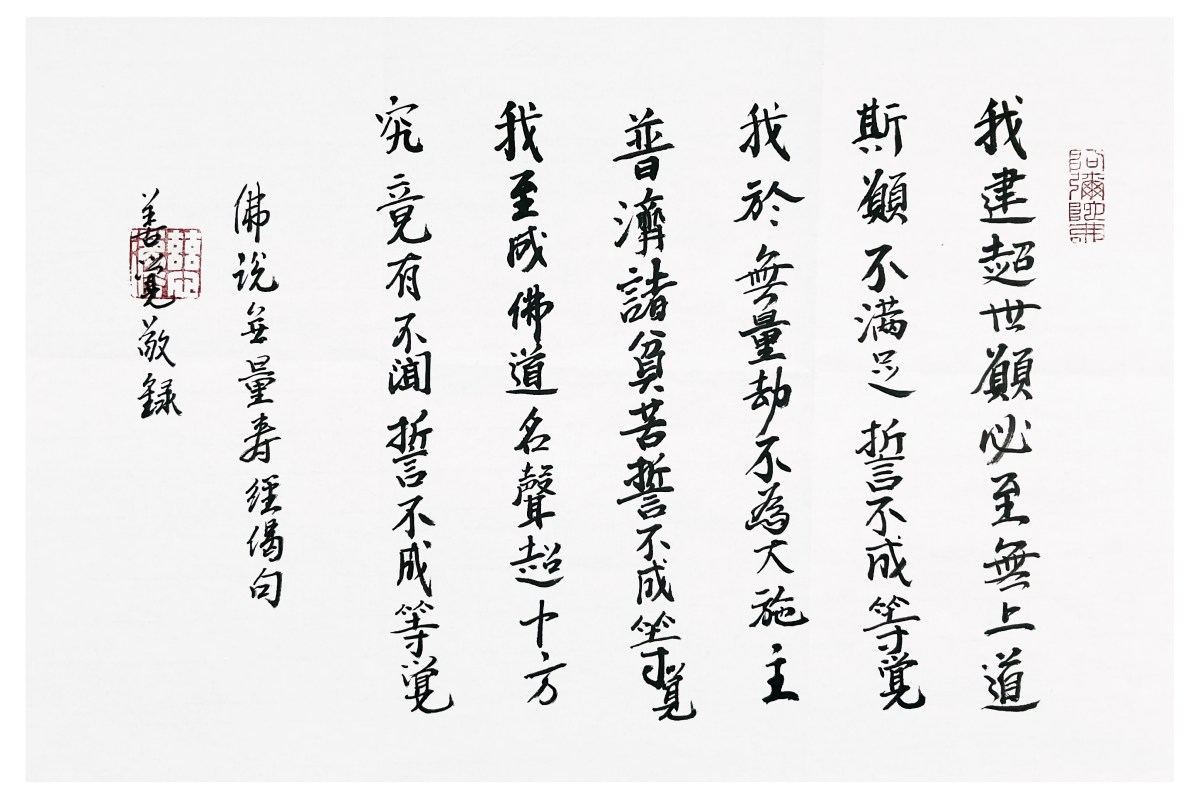 阿彌陀佛
我建超世願必至無上道
斯願不滿足誓不成等覺
我於無量劫不為大施主
普濟諸貧苦誓不成等覺
我至成佛道名聲超十方
究竟有不聞誓不成等覺
佛說無量寿經偈句
善覺敬録